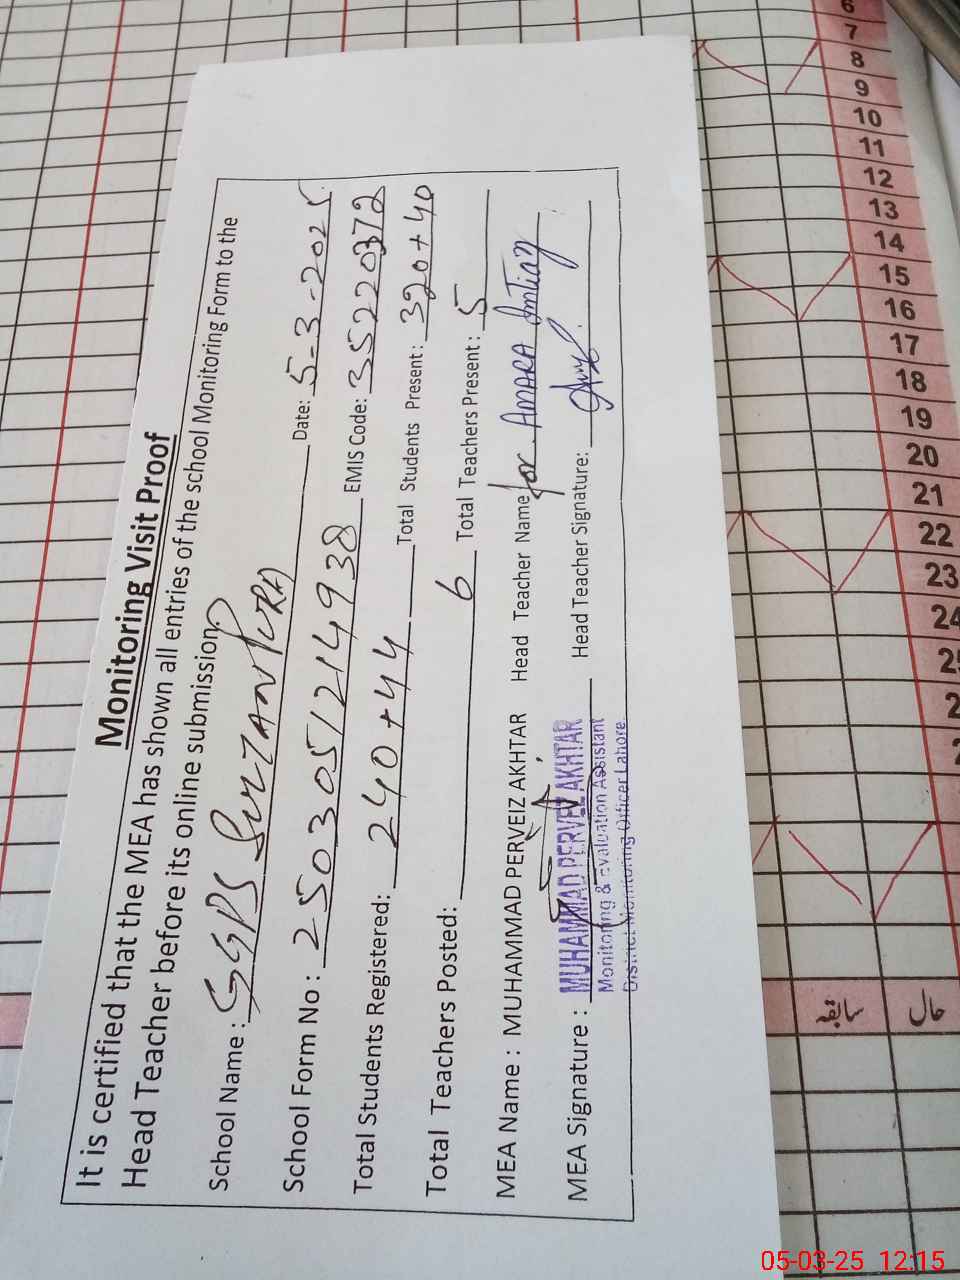 Monitoring Visit Proof
It is certified that the MEA has shown all entries of the school Monitoring Form to the
Head Teacher before its online submission.
School Name : GGPS Date: 5-3-2025
School Form No : 2503051214938 EMIS Code: 35220372
Total Students Registered: 240+44 Total Students Present: 320+40
Total Teachers Posted: 6 Total Teachers Present: 5
MEA Name : MUHAMMAD PERVEIZ AKHTAR Head Teacher Name for AMARA Imtiaz
MEA Signature : Head Teacher Signature:
MUHAMMAD PERVEZ AKHTAR
Monitoring & Evaluation Assistant
District Monitoring Officer Lahore.
6
7
8
9
10
11
12
13
14
15
16
17
18
19
20
21
22
23
24
سابقہ
حال
05-03-25 12:15